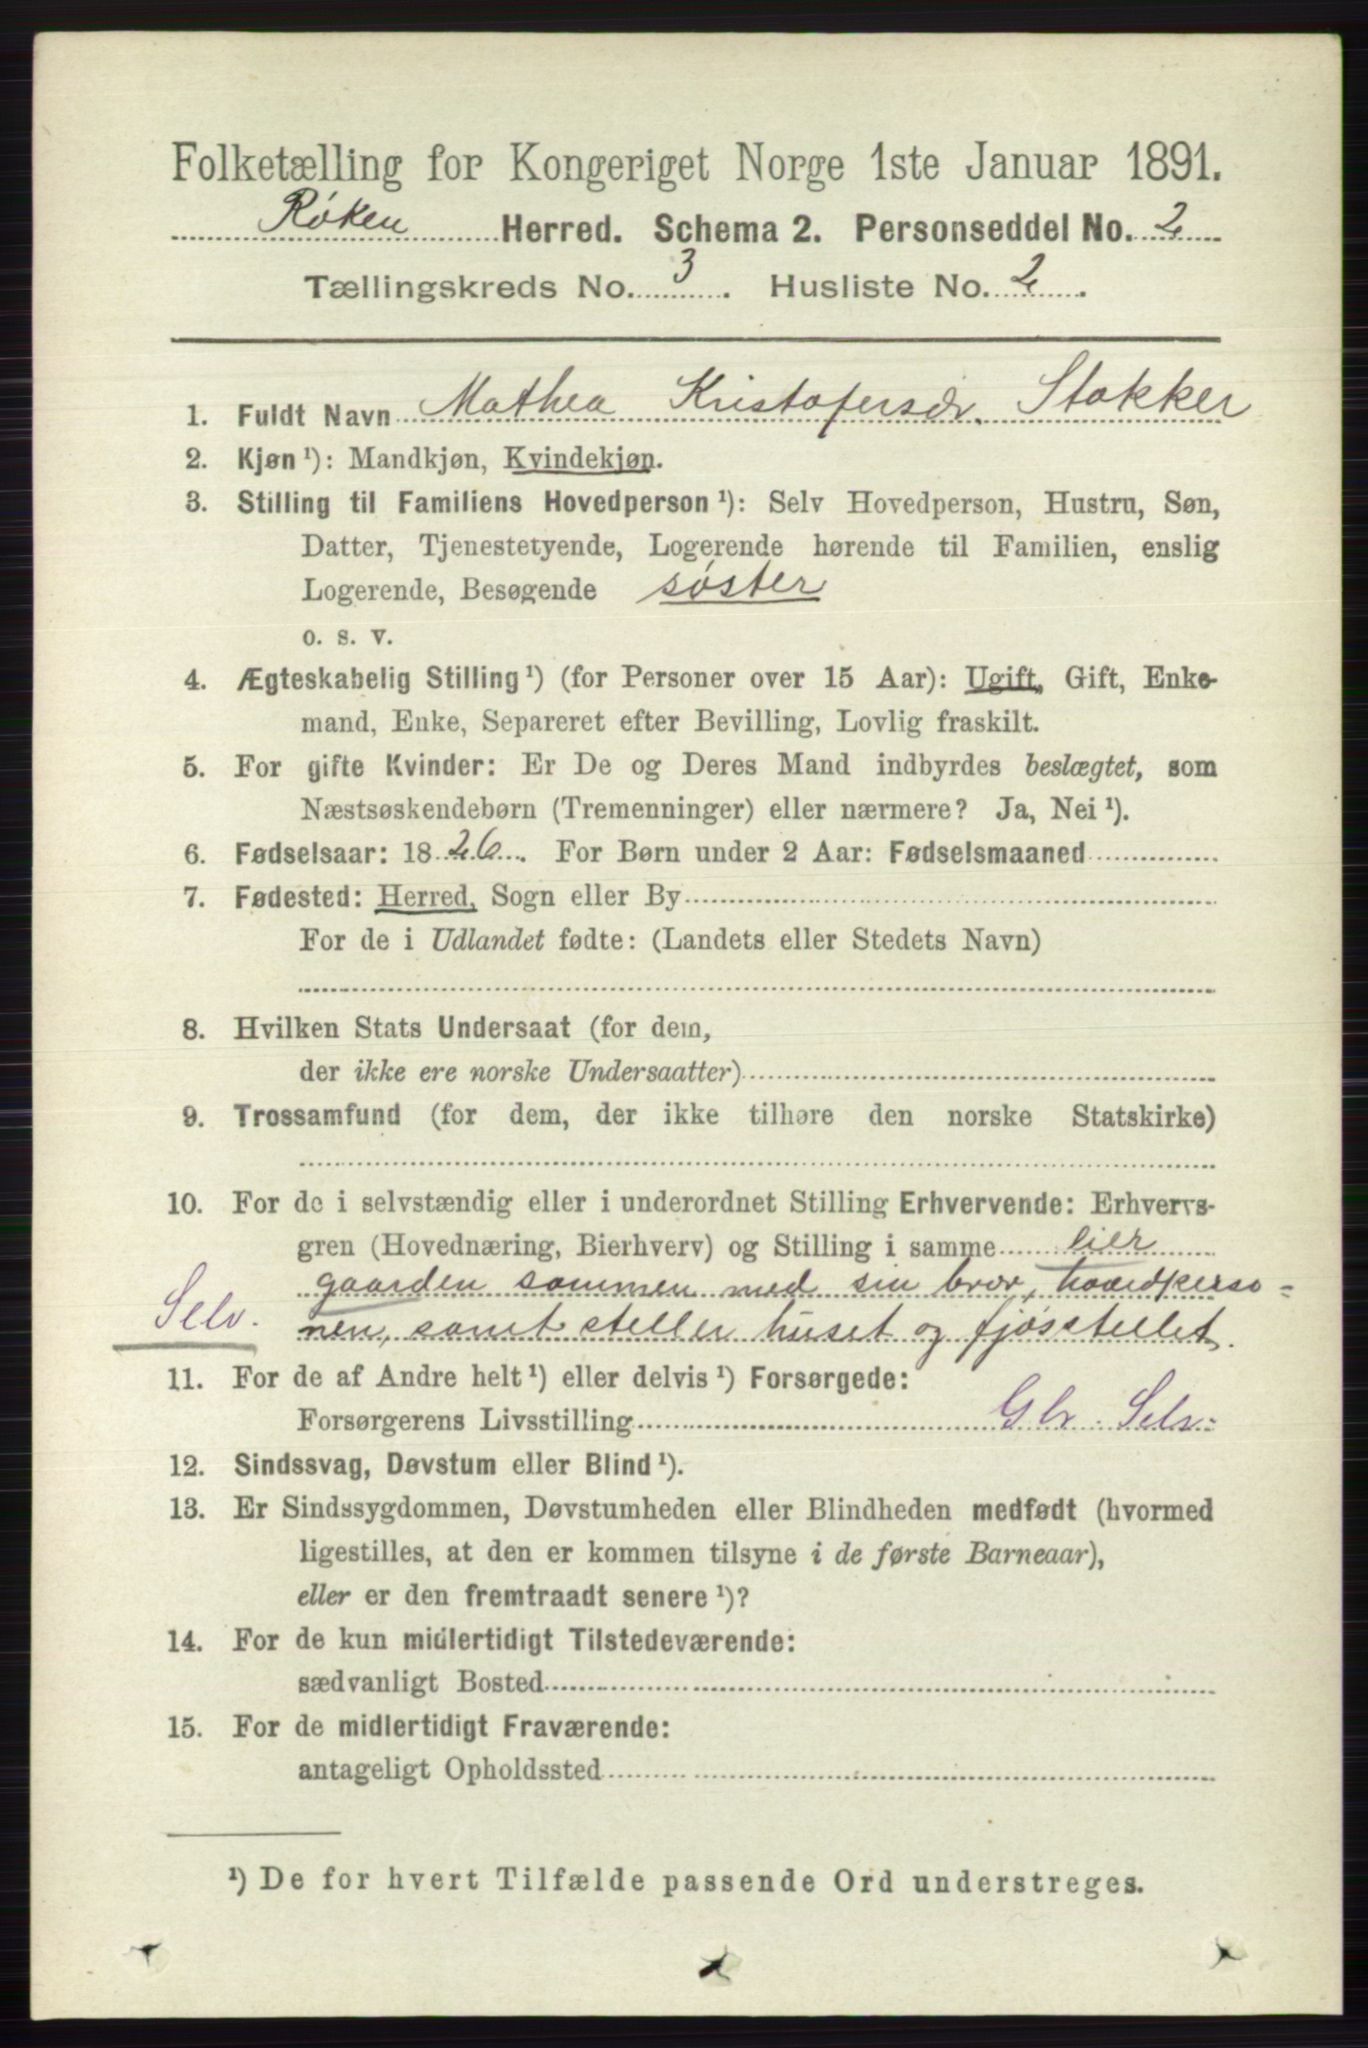 Folketælling for Kongeriget Norge 1ste Januar 1891.
Røken Herred. Schema 2. Personseddel No. 2
Tællingskreds No. 3. Husliste No. 2.
1. Fuldt Navn Mathea Kristofersdr. Stokker
2. Kjøn ¹): Mandkjøn, Kvindekjøn.
3. Stilling til Familiens Hovedperson ¹): Selv Hovedperson, Hustru, Søn,
Datter, Tjenestetyende, Logerende hørende til Familien, enslig
Logerende, Besøgende søster
o. s. v.
4. Ægteskabelig Stilling ¹) (for Personer over 15 Aar): Ugift, Gift, Enke-
mand, Enke, Separeret efter Bevilling, Lovlig fraskilt.
5. For gifte Kvinder: Er De og Deres Mand indbyrdes beslægtet, som
Næstsøskendebørn (Tremenninger) eller nærmere? Ja, Nei ¹).
6. Fødselsaar: 1826. For Børn under 2 Aar: Fødselsmaaned
7. Fødested: Herred, Sogn eller By
For de i Udlandet fødte: (Landets eller Stedets Navn)
8. Hvilken Stats Undersaat (for dem,
der ikke ere norske Undersaatter)
9. Trossamfund (for dem, der ikke tilhøre den norske Statskirke)
10. For de i selvstændig eller i underordnet Stilling Erhvervende: Erhvervs-
gren (Hovednæring, Bierhverv) og Stilling i samme eier
gaarden sammen med sin bror, hovedperso-
Selv. nen, samt steller huset og fjøsstellet.
11. For de af Andre helt ¹) eller delvis ¹) Forsørgede:
Forsørgerens Livsstilling Gbr. Selv.
12. Sindssvag, Døvstum eller Blind ¹).
13. Er Sindssygdommen, Døvstumheden eller Blindheden medfødt (hvormed
ligestilles, at den er kommen tilsyne i de første Barneaar),
eller er den fremtraadt senere ¹)?
14. For de kun midlertidigt Tilstedeværende:
sædvanligt Bosted
15. For de midlertidigt Fraværende:
antageligt Opholdssted
¹) De for hvert Tilfælde passende Ord understreges.